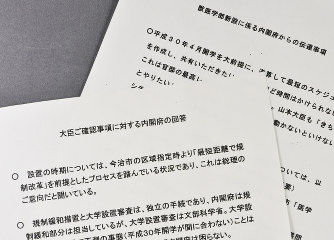 獣医学部新設に係る内閣府からの伝達事項
○平成30年4月開学を大前提に、
算して最短のスケジュ
を作成し、共有いただきたい
これは官邸の最高
ど時間はかけられない
とやりたい
。山本大臣も「きち
動かないといけない
大臣ご確認事項に対する内閣府の回答
○ 設置の時期については、今治市の区域指定時より「最短距離で規
制改革」を前提としたプロセスを踏んでいる状況であり、これは総理の
ご意向だと聞いている。
○ 規制緩和措置と大学設置審査は、独立の手続であり、内閣府は規
制緩和部分は担当しているが、大学設置審査は文部科学省。大学設
の事態（平成30年開学が間に合わない）ことは
については、
要）
市「医学